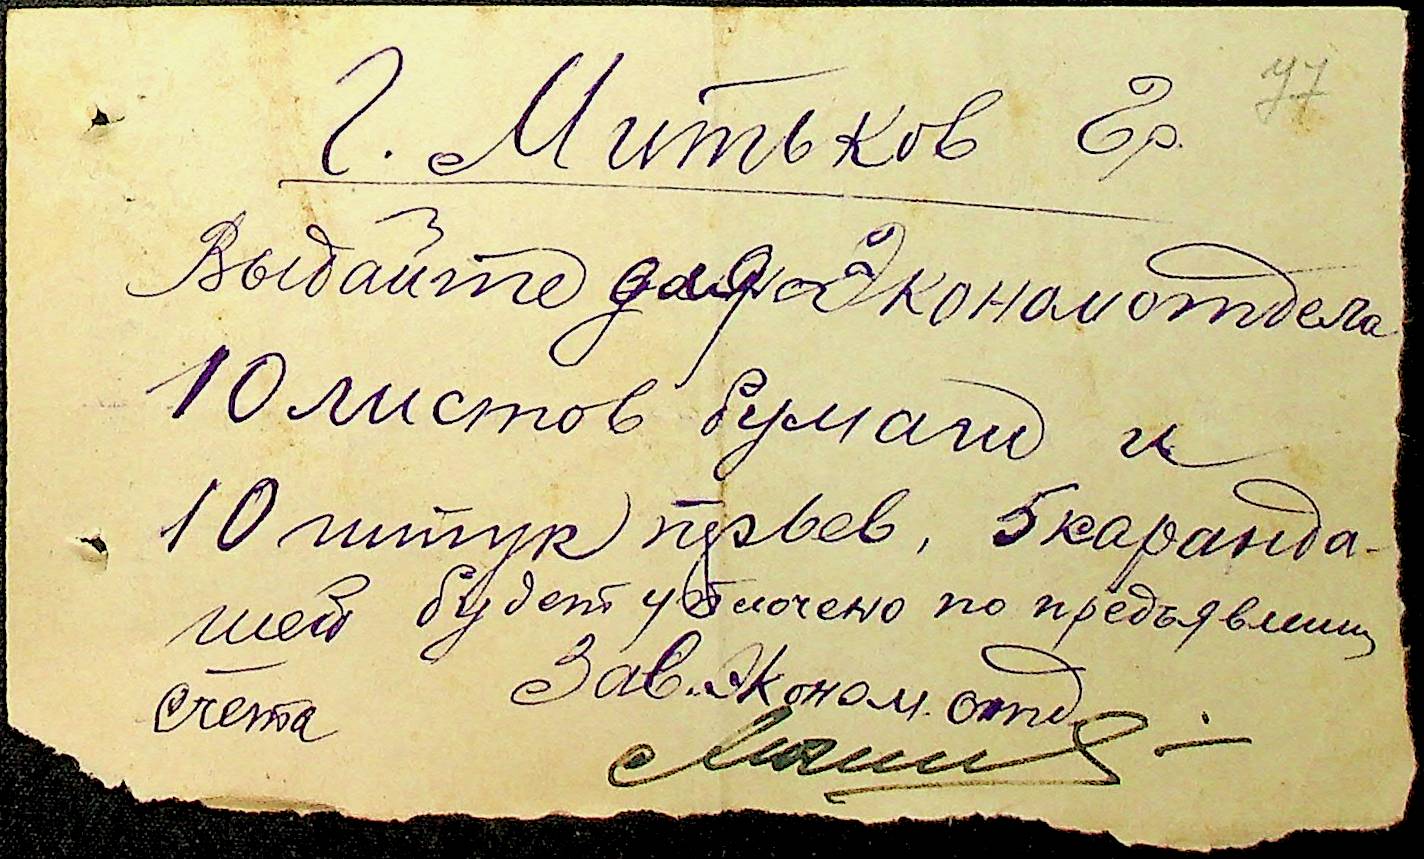 77
Г. Митьков Ер.
Выдайте для Экономотдела
10 листов бумаги и
10 штук перьев, 5 каранда-
шей будет уплочено по предъявлении
счета Зав. Эконом. отд.